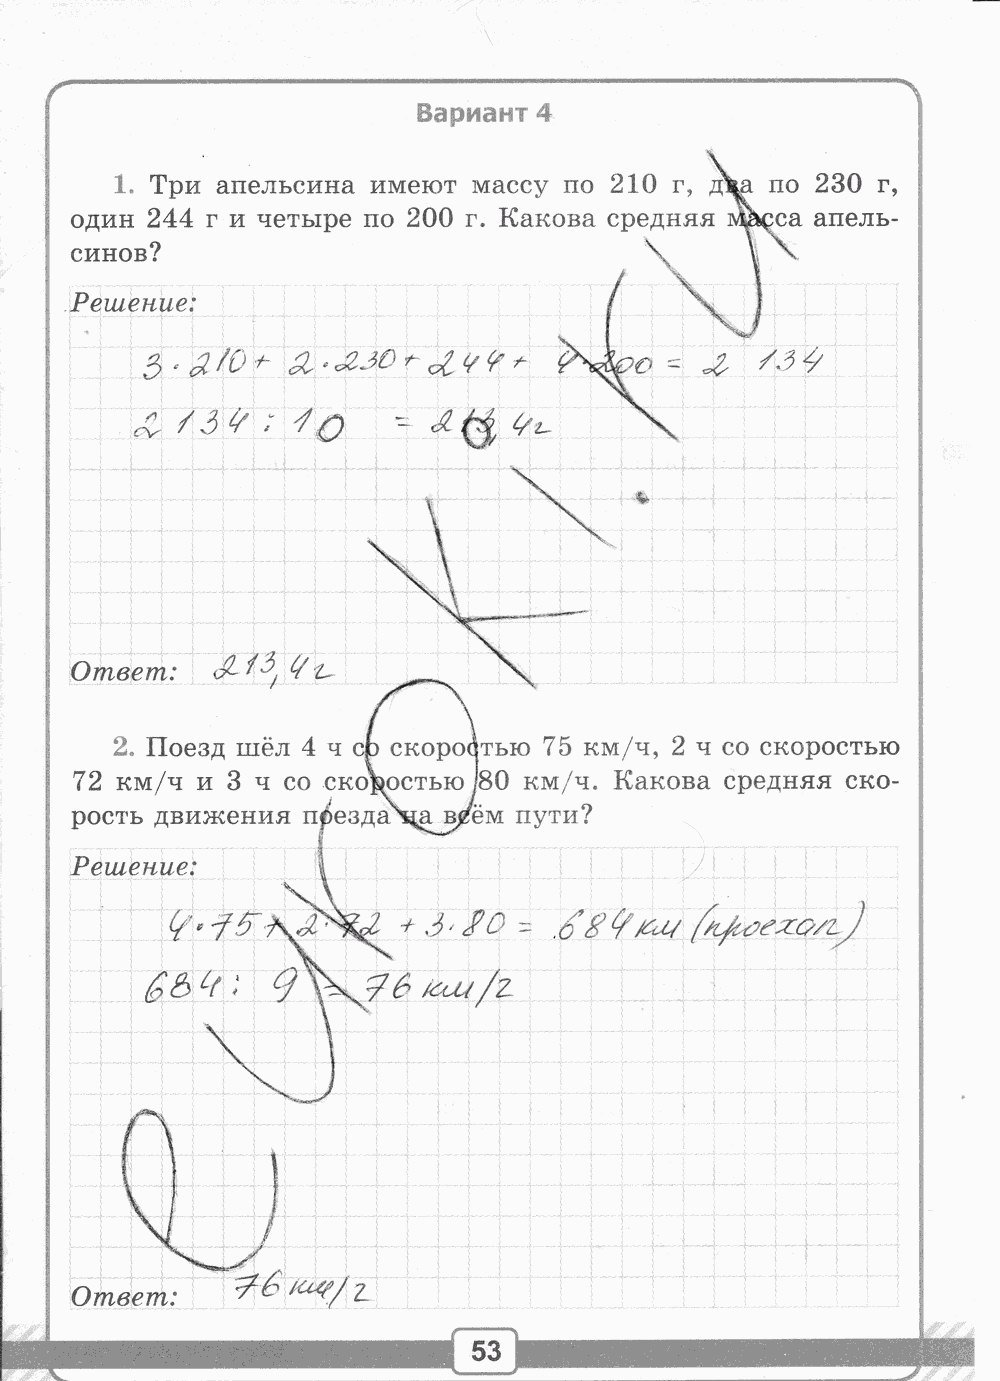 Вариант 4
1. Три апельсина имеют массу по 210 г, два по 230 г,
один 244 г и четыре по 200 г. Какова средняя масса апель-
синов?
Решение:
3·210+ 2·230+244+ 4·200= 2 134
2 134 : 10 = 213,4г
Ответ: 213,4г
2. Поезд шёл 4 ч со скоростью 75 км/ч, 2 ч со скоростью
72 км/ч и 3 ч со скоростью 80 км/ч. Какова средняя ско-
рость движения поезда на всём пути?
Решение:
4·75+2·72+3·80= 684км (проехал)
684: 9 = 76 км/ч
Ответ: 76 км/ч
53
euroki.ru